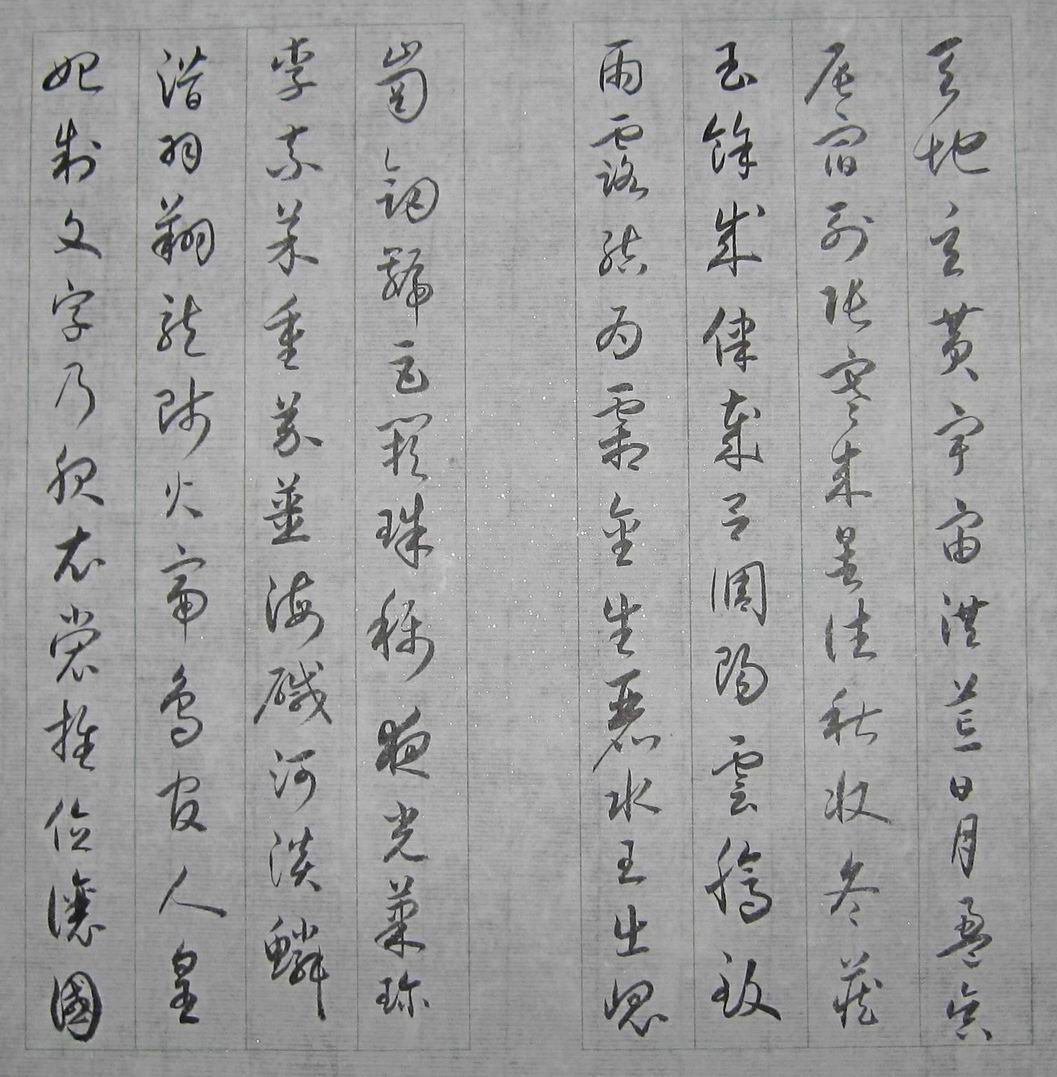 天地玄黃宇宙洪荒日月盈昃
辰宿列張寒來暑往秋收冬藏
玉餘成律歲呂調陽雲騰致
雨露結為霜金生麗水玉出崑
崗劍號巨闕珠稱夜光菓珍
李柰菜重芥薑海鹹河淡鱗
潛羽翔龍師火帝鳥官人皇
始制文字乃服衣裳推位讓國